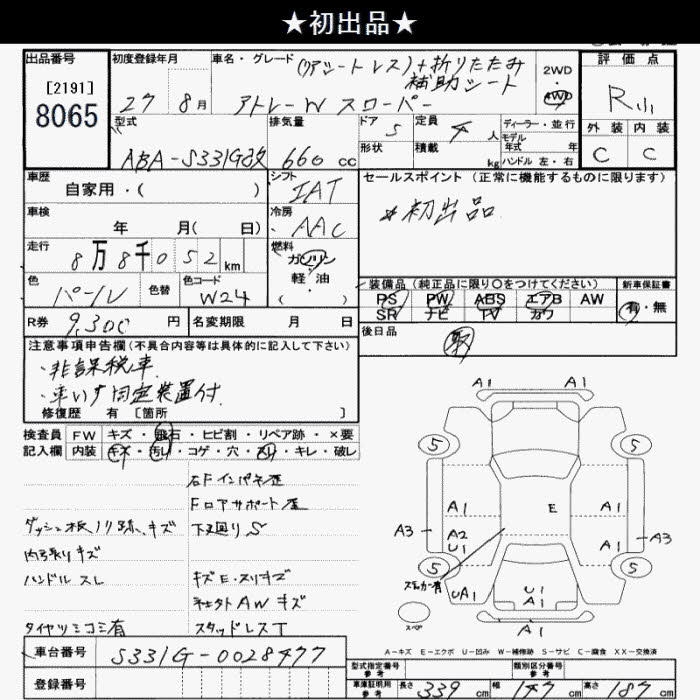 ★初出品★
出品番号
[2191]
8065
初度登録年月
27 8月
車名・グレード
(リアシートレス)+折りたたみ
補助シート
アトレーW スローパー
2WD
・
4WD
評価点
R小
外装 内装
C C
型式
ABA-S331G改
排気量
660 cc
ドア 5
形状
定員 4 人
積載 kg
ディーラー・並行
モデル
年式 年
ハンドル 左・右
車歴
自家用・( )
シフト
IAT
車検
年 月( 日)
冷房
AAC
走行
8万8千052km
燃料
ガソリン
軽・油
・( )
色
パール
色替
色コード
W24
R券 9,300 円
名変期限 月 日
セールスポイント(正常に機能するものに限ります)
☆初出品
装備品(純正品に限り○をつけてください)
PS PW ABS エアB AW
SR ナビ TV カワ
新車保証書
有・無
後日品
取
注意事項申告欄(不具合内容等は具体的に記入して下さい)
・非課税車
・車いす固定装置付
修復歴 有 [箇所 ]
検査員
記入欄
FW キズ・飛石・ヒビ割・リペア跡・×要
内装 キズ・汚れ・コゲ・穴・スリ・キレ・破し
右Fインパネ歪
Fロアサポート歪
ダッシュ板ノリ跡、キズ
下廻りS
内張りキズ
ハンドルスレ
キズE・スリキズ
社外AWキズ
タイヤツミコミ有
スタッドレスT
A1 A1
5 5
A1 E A1
A3 A2 U1 A1 A3
5 5
ステッカー有
UA1 U1 A1
A1
スペア
A-キズ E-エクボ U-凹み W-補修跡 S-サビ C-腐食 XX-交換済
車台番号
S331G-0028477
登録番号
型式指定番号
参考
類別区分番号
参考
車庫証明用
参考
長さ 339 cm
幅 147 cm
高さ 187 cm